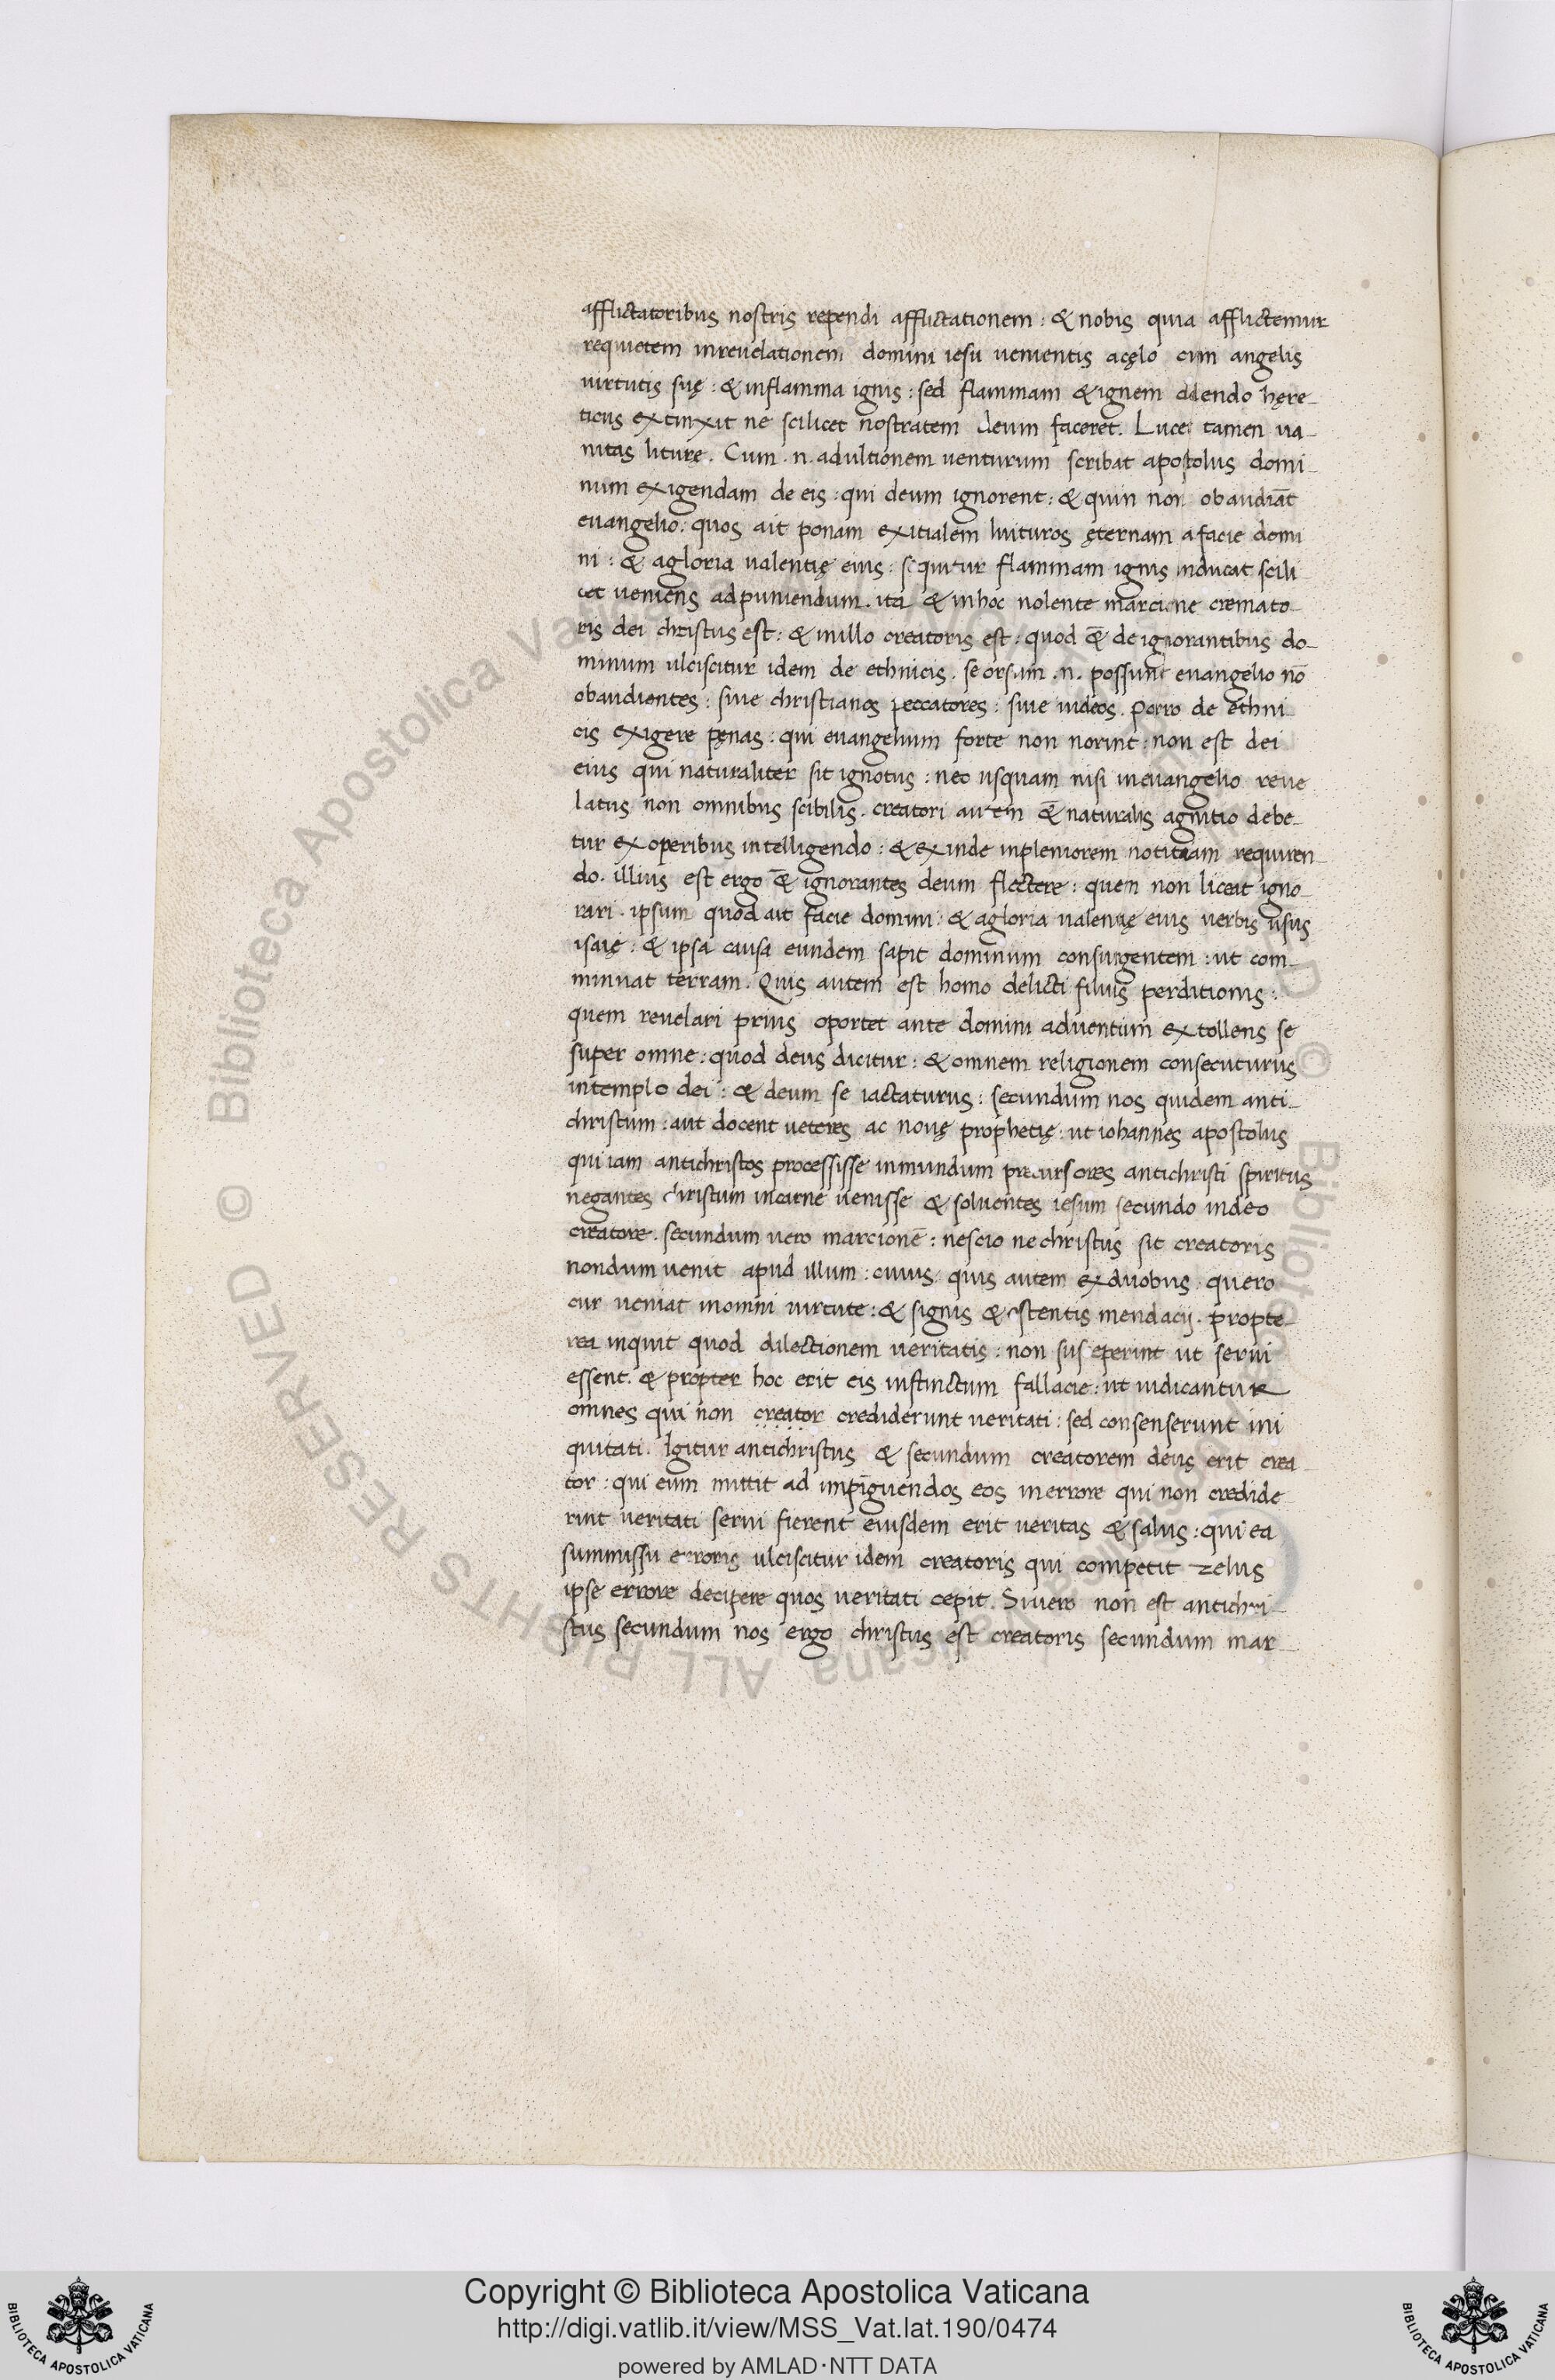 afflictatoribus nostris rependi afflictationem : & nobis quia afflictemur
requietem inreuelationem domini iesu uenientis acęlo cum angelis
uirtutis suę : & inflamma ignis : sed flammam & ignem delendo hęre-
ticus extinxit ne scilicet nostratem deum faceret. Lucet tamen ua-
nitas liture. Cum .n. adultionem uenturum scribat apostolus domi-
num exigendam de eis : qui deum ignorent : & quin non obaudiāt
euangelio : quos ait ponam exitialem luituros ęternam afacie domi
ni : & agloria ualentię eius : sequitur flammam ignis inducat scili-
cet ueniens adpuniendum. ita & inhoc nolente marcione cremato-
ris dei christus est : & in illo creatoris est : quod &̄ de ignorantibus do-
minum ulciscitur idem de ethnicis. seorsum .n. possunt euangelio nō
obaudientes : siue christianos peccatores : siue iudeos. porro de ethni
cis exigere pęnas : qui euangelium forte non norint : non est dei
eius qui naturaliter sit ignotus : nec usquam nisi ineuangelio reue
latus non omnibus scibilis. creatori autem &̄ naturalis agnitio debe-
tur exoperibus intelligendo : & exinde inpleniorem notitiam requiren-
do. illius est ergo &̄ ignorantes deum flectere : quem non liceat igno-
rari. ipsum quod ait facie domini : & agloria ualentię eius uerbis usus
isaię : & ipsa causa eundem sapit dominum consurgentem : ut com-
minuat terram. Quis autem est homo delicti filius perditionis :
quem reuelari prius oportet ante domini aduentum extollens se
super omne : quod deus dicitur : & omnem religionem consecuturus
intemplo dei : & deum se iactaturus : secundum nos quidem anti-
christum : aut docent ueteres ac nouę prophetię : ut iohannes apostolus
qui iam antichristos processisse inmundum precursores antichristi spiritus
negantes christum incarne uenisse & soluentes iesum secundo indeo
creatore. secundum uero marcionē : nescio ne christus sit creatoris
nondum uenit apud illum : cuius quis autem exduobus quero
cur ueniat inomni uirtute : & signis & ostentis mendacij. propte-
rea inquit quod dilectionem ueritatis : non susceperint ut serui
essent. & propter hoc erit eis instinctum fallacie : ut iudicantur
omnes qui non creator crediderunt ueritati : sed consenserunt ini
quitati. Igitur antichristus & secundum creatorem deus erit crea-
tor : qui eum mittit ad impīguendos eos inerrore qui non credide
rint ueritati serui fierent eiusdem erit ueritas & salus : qui ea
summissu erroris ulciscitur idem creatoris qui competit zelus
ipse errore decipere quos ueritati cepit. Siuero non est antichri-
stus secundum nos ergo christus est creatoris secundum mar-
Copyright © Biblioteca Apostolica Vaticana
http://digi.vatlib.it/view/MSS_Vat.lat.190/0474
powered by AMLAD·NTT DATA